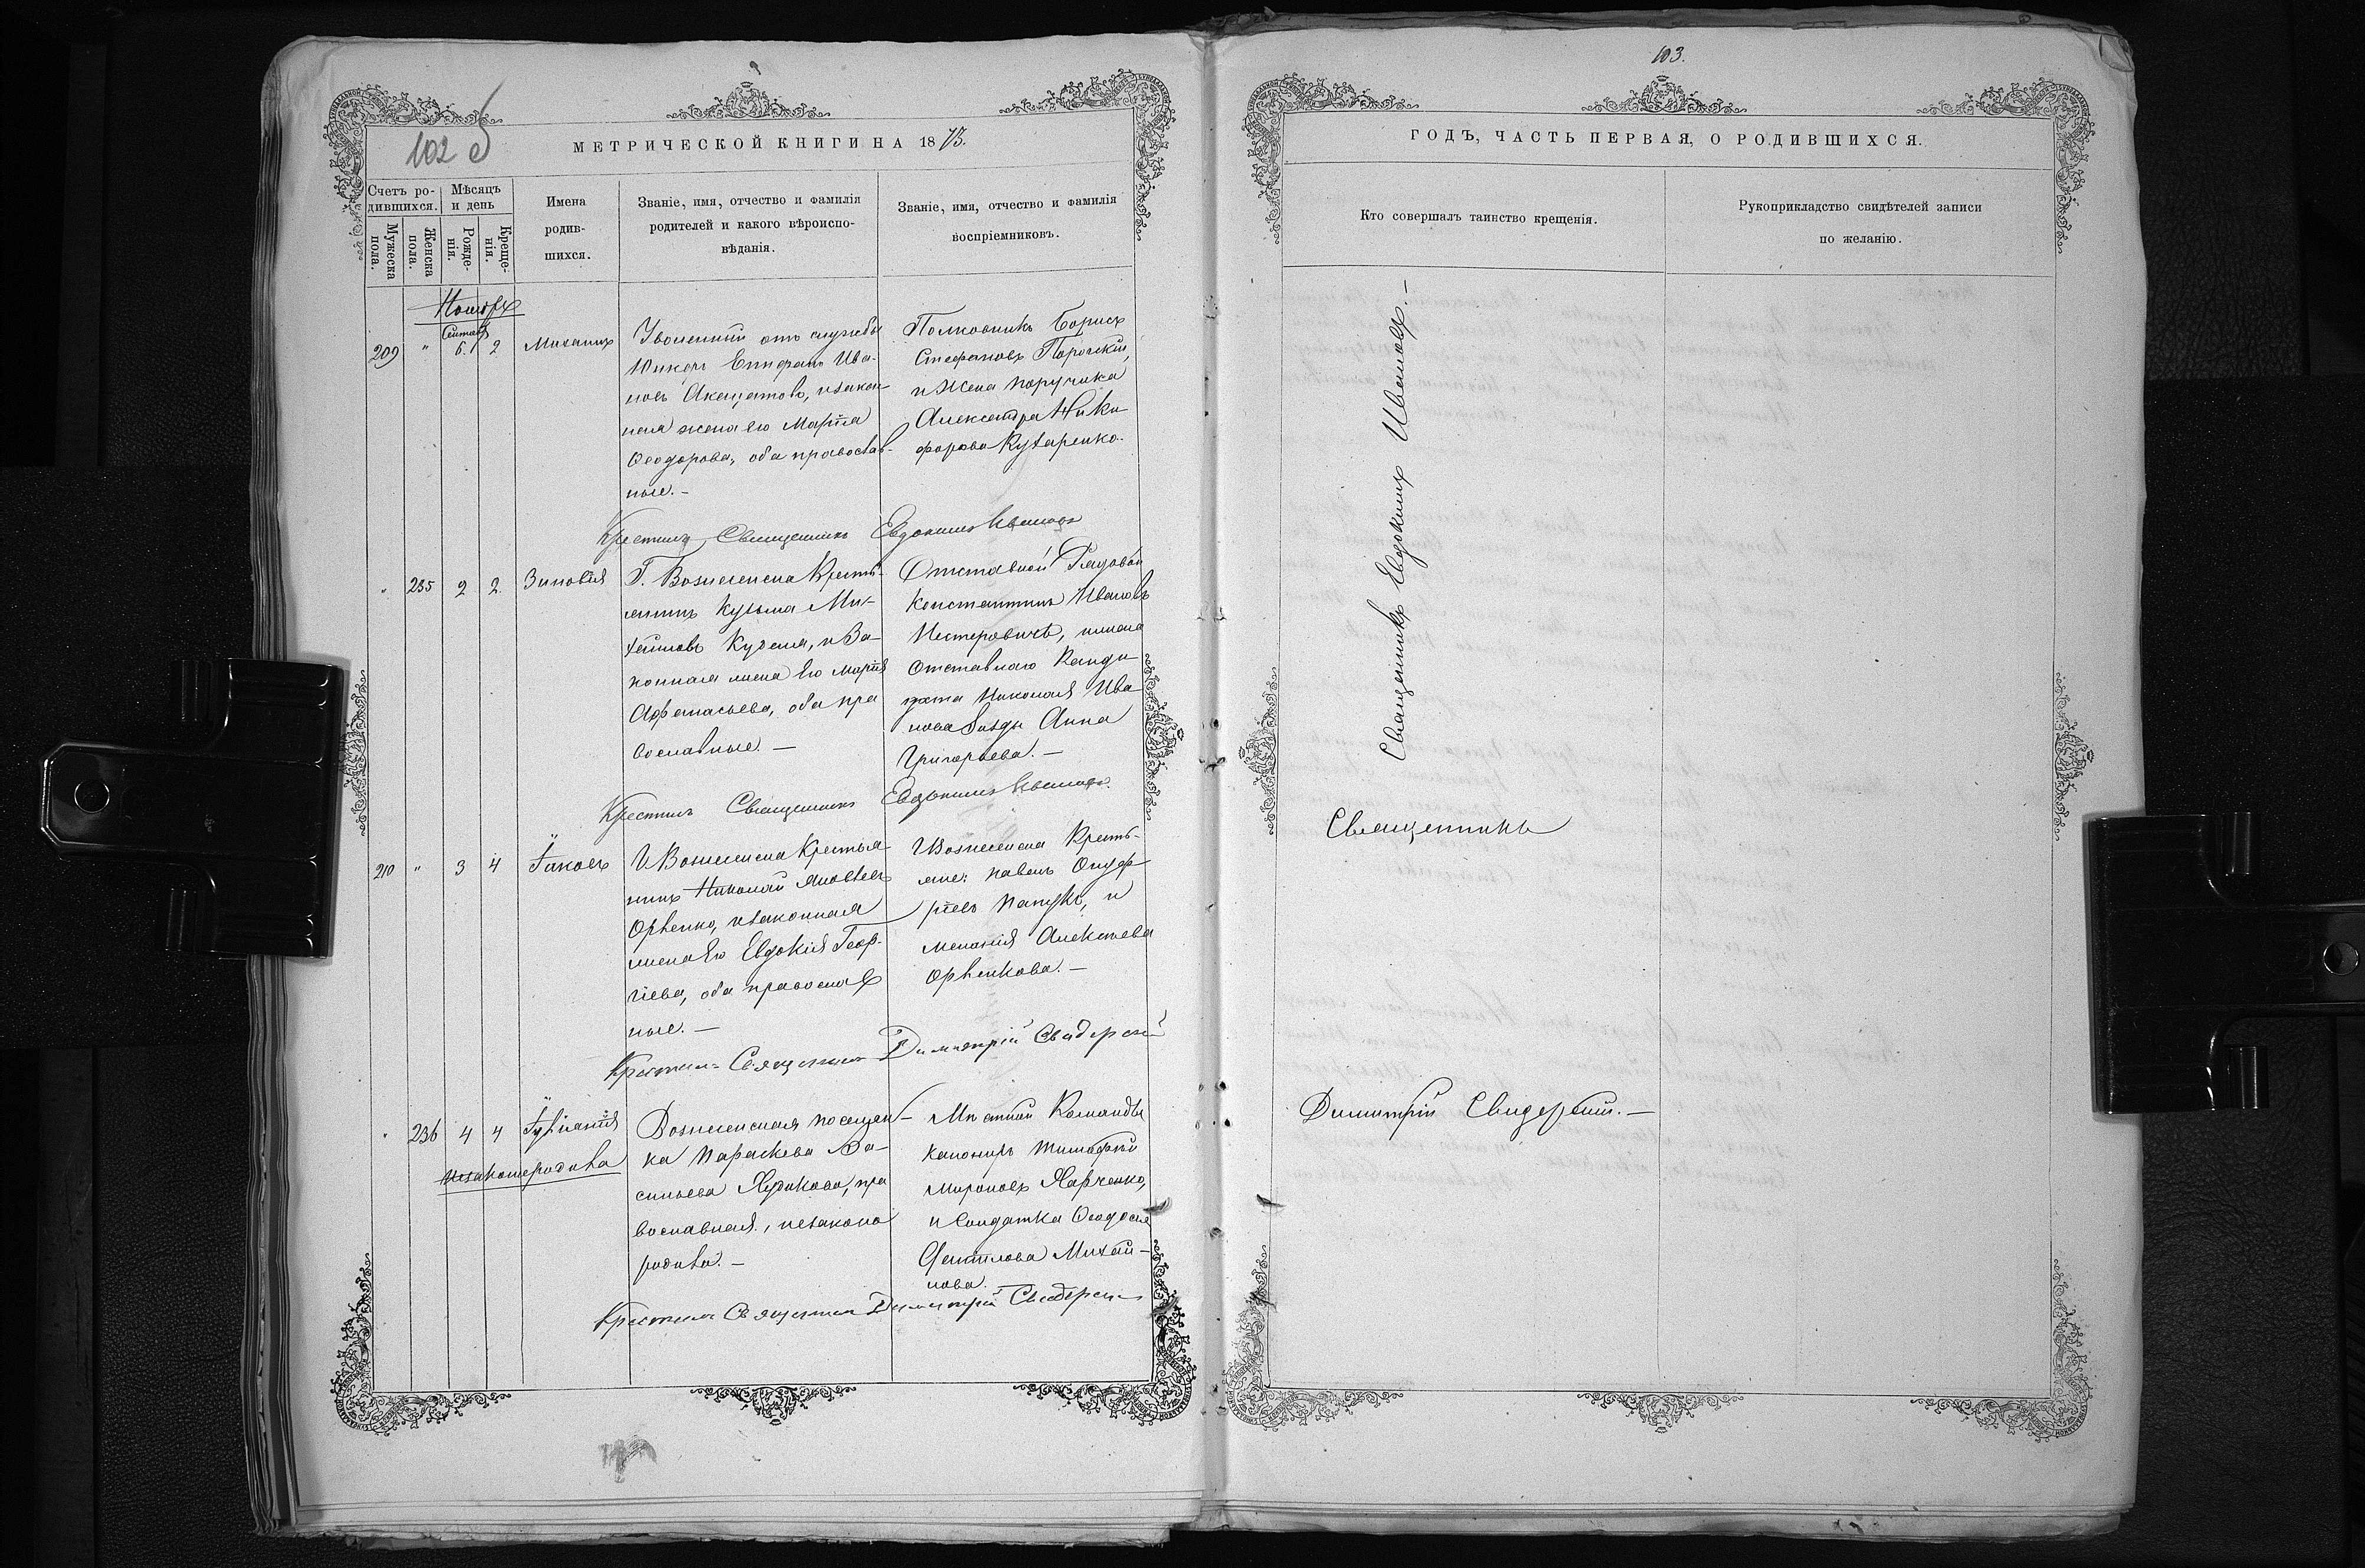 102 б
МЕТРИЧЕСКОЙ КНИГИ НА 1873.
Счетъ ро-
дившихся.
Мѣсяцъ
и день
Мужеска
пола.
Женска
пола.
Рожде-
нія.
Креще-
нія.
Имена
родив-
шихся.
Званіе, имя, отчество и фамилія
родителей и какого вѣроиспо-
вѣданія.
Званіе, имя, отчество и фамилія
воспріемниковъ.
Ноябрь
209 " 6. 2 Михаилъ
Уволенный отъ службы
Юнкеръ Епифанъ Ива-
новъ и закон-
ная жена его Марѳа
Ѳеодорова, оба православ-
ные.-
Полковникъ Борисъ
Стефановъ
и Жена поручика
Александра Ники-
форова Кухаренко.
Крестилъ Священникъ Евдокимъ Ивановъ
" 235 2 2. Зиновія
Г. Вознесенска Кресть-
янинъ Кузьма Ми-
хайловъ и За-
конная жена его Марія
Афанасьева, оба пра
вославные.-
Отставной Рядовой
Константинъ Ивановъ
Нестеровичъ, и жена
Отставнаго Канди-
дата Николая Ива-
нова Анна
Григорьева.-
Крестилъ Священникъ Евдокимъ Ивановъ.
210 " 3 4 Іаковъ
Г Вознесенска Крестья
нинъ Николай Яковлевъ
и законная
жена его Евдокія Геор-
гіева, оба православ
ные.-
Г Вознесенска Кресть-
яне: Павелъ Онуф-
ріевъ и
Меланія Алексѣева
Крестилъ Священникъ Димитрій Свидерскій
" 236 4 4
незаконнорожде
Вознесенская поселян-
ка Параскева Ва-
сильева пра
вославная, незаконо
рожде.-
Мѣстной Команды
канониръ Тимофей
Мироновъ Харченко,
и Солдатка Ѳеодосія
Михай-
лова.
Крестилъ Священникъ Димитрій Свидерскій
103.
ГОДЪ, ЧАСТЬ ПЕРВАЯ, О РОДИВШИХСЯ.
Кто совершалъ таинство крещенія.
Рукоприкладство свидѣтелей записи
по желанію.
Священникъ Евдокимъ Ивановъ.-
Священникъ
Димитрій Свидерскій.-